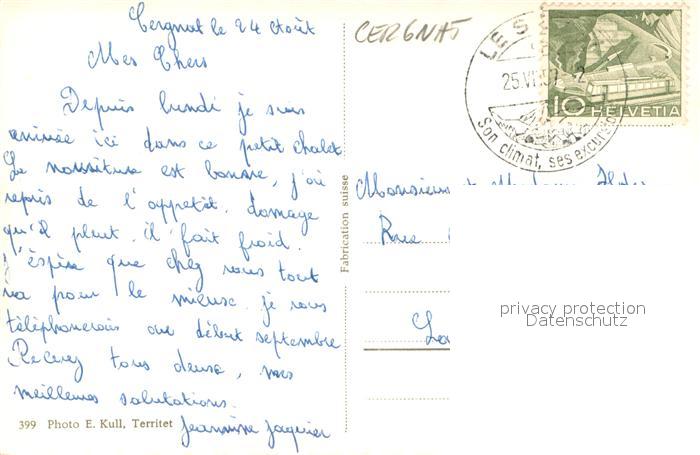 Cergnat le 24 Août
Mes Chers
Depuis lundi je suis
arrivée ici dans ce petit chalet
La nourriture est bonne, j'ai
repris de l'appetit. domage
qu'il pleut. il fait froid.
J'éspère que chez vous tout
va pour le mieux. je vous
téléphonerais au début septembre
Recevez tous deux, mes
meilleures salutations.
Jeannine Jaquier
399 Photo E. Kull, Territet
Fabrication suisse
CERGNAT
LE S
25.VI
Son climat, ses excursio
10 HELVETIA
Monsieur et Madame
Rue
La
privacy protection
Datenschutz